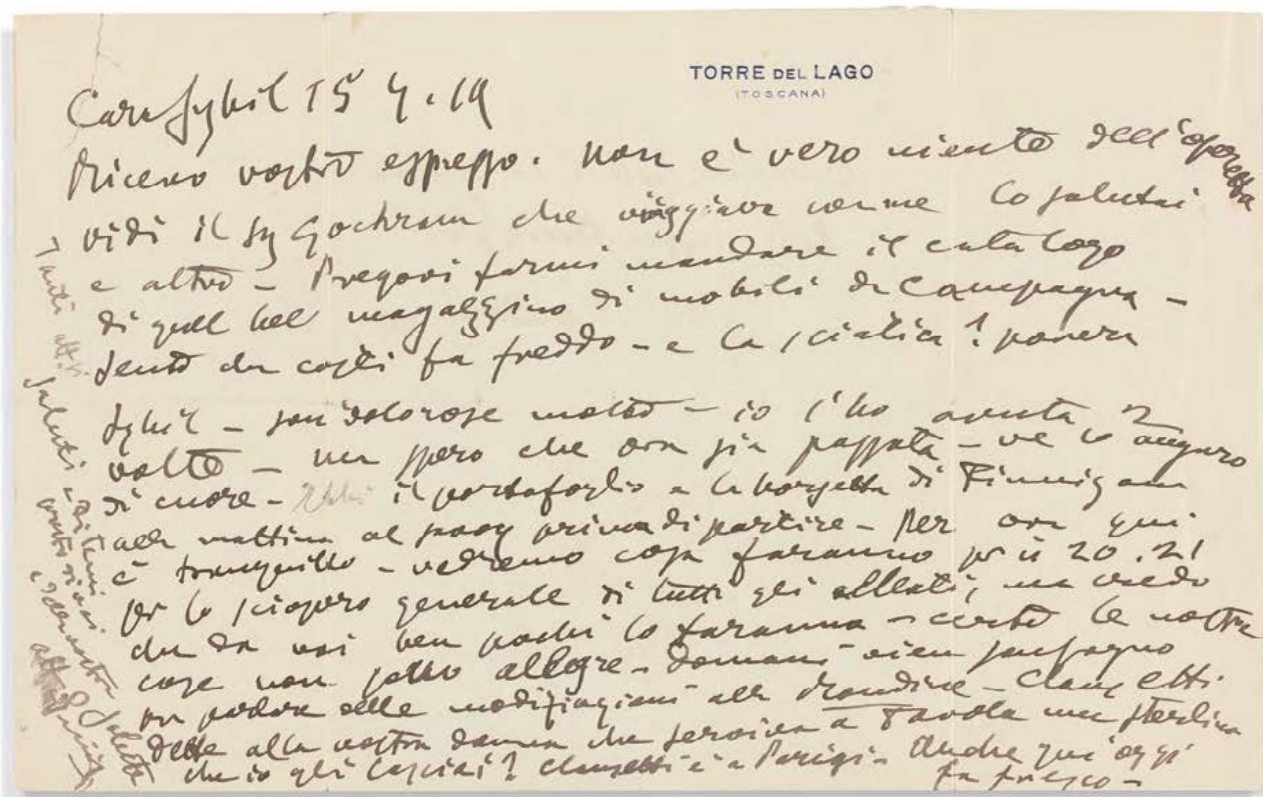 TORRE DEL LAGO
(TOSCANA)
Cara Sybil 15 7.19
Ricevo vostro espresso. Non è vero niente dell'operetta
vidi il sig che viaggiava con me lo salutai
e altro – Pregovi farmi mandare il catalogo
di quel bel magazzino di mobili da Campagna –
sento da costì fa freddo – e la sciatica? povera
Sybil – son dolorose molto – io l'ho avuta 2
volte – ma spero che ora sia passata – ve lo auguro
di cuore – Ebbi il portafoglio e la borsetta di Finnigan
alla mattina al Savoy prima di partire – Per ora qui
è tranquillo – vedremo cosa faranno per il 20.21
per lo sciopero generale di tutti gli alleati, ma credo
che da voi ben pochi lo faranno – certo le nostre
cose non sono allegre – Domani vien
per vedere alle modificazioni alla Rondine – Clausetti
dette alla vostra donna che serviva a tavola una sterlina
che io gli lasciai? Clausetti è a Parigi – Anche qui oggi
fa fresco –
Tanti aff. saluti a
vostri
e saluto